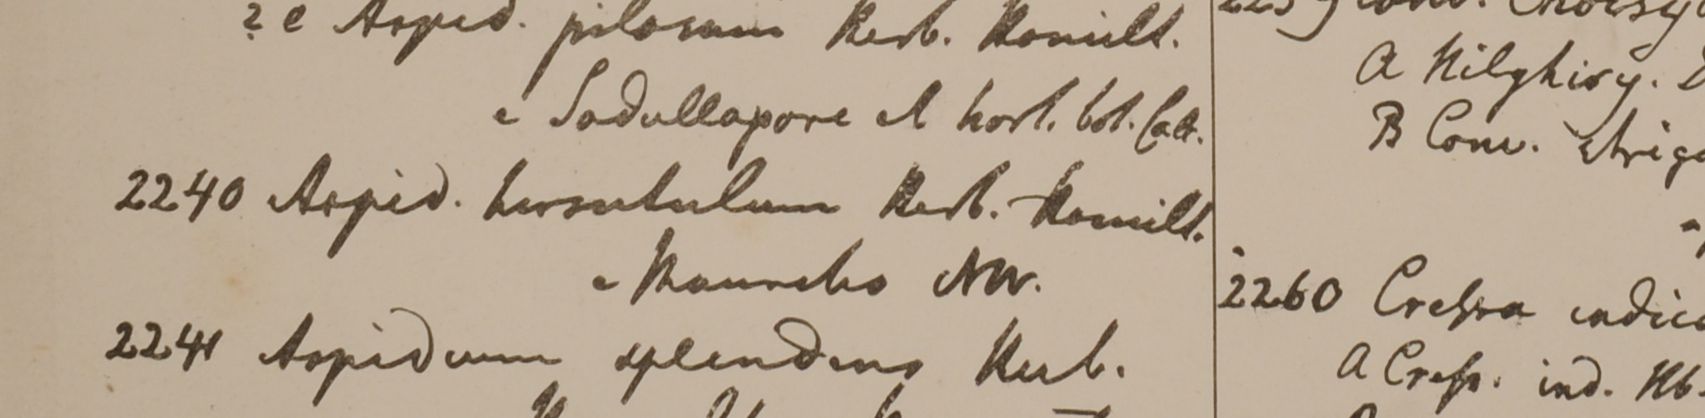 2 e Aspid. pilosum Herb. Hamilt.
e Sadullapore et hort. bot. Calc.
2240 Aspid. hirsutulum Herb. Hamilt.
e Mauritio NW.
2241 Aspidium splendens Herb.
A Nilghiry.
B Conv. strigo
2260 Cressa indica
A Cress. ind. Hb.